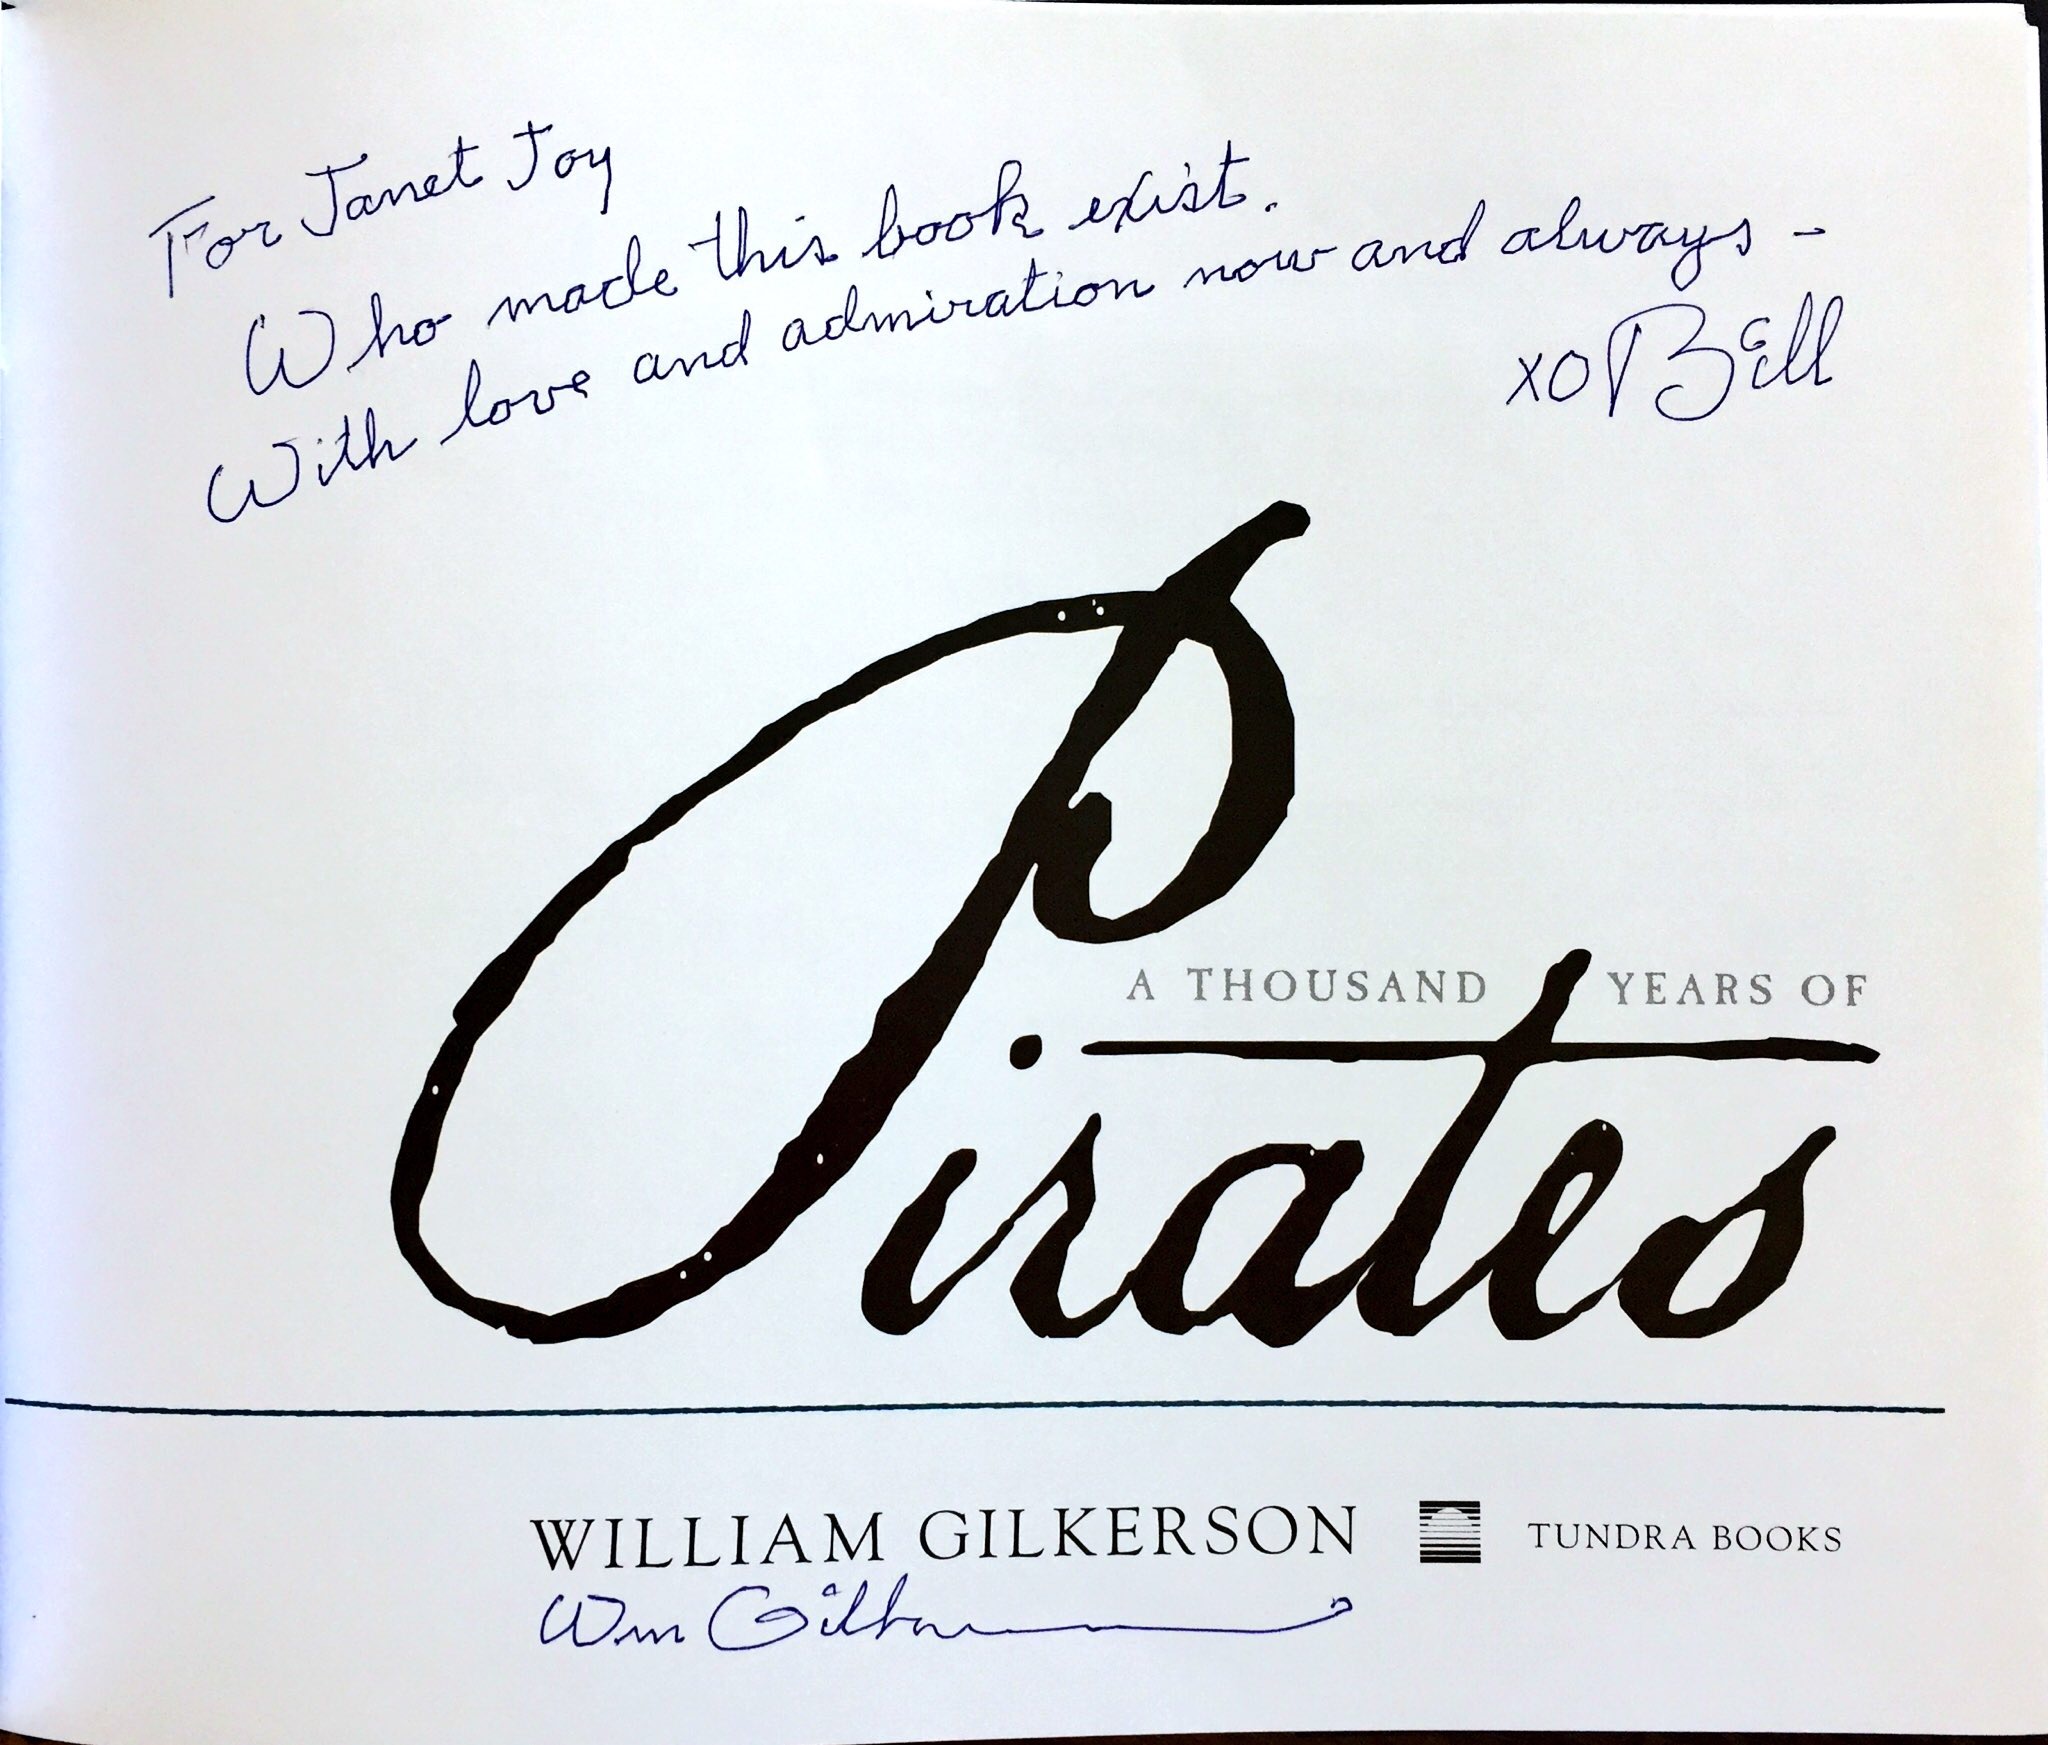 For Janet Joy
Who made this book exist.
With love and admiration now and always –
XO Bill
A THOUSAND YEARS OF
Pirates
WILLIAM GILKERSON
TUNDRA BOOKS
Wm Gilkerson